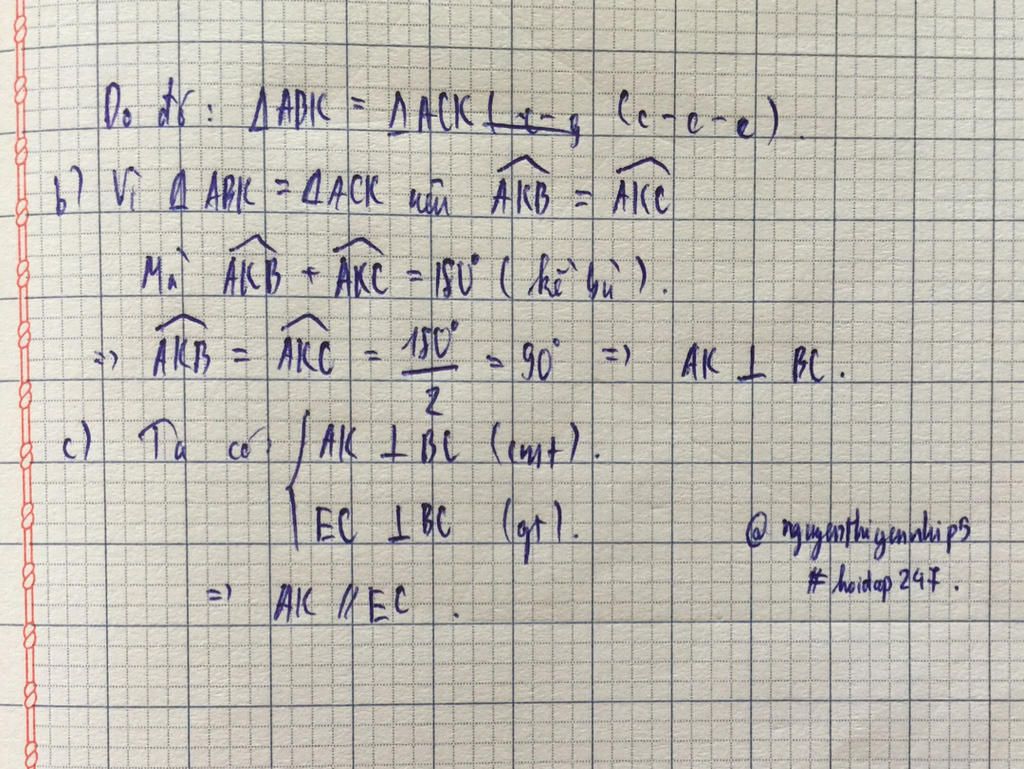 Do đó: ΔABK = ΔACK (c-c-c).
b) Vì ΔABK = ΔACK nên \widehat{AKB} = \widehat{AKC}
Mà \widehat{AKB} + \widehat{AKC} = 180° (kề bù).
=> \widehat{AKB} = \widehat{AKC} = \frac{180°}{2} = 90° => AK ⊥ BC.
c) Ta có { AK ⊥ BC (cmt).
EC ⊥ BC (gt).
=> AK // EC.
@ nguyenthiyennhip5
# hoidap247.